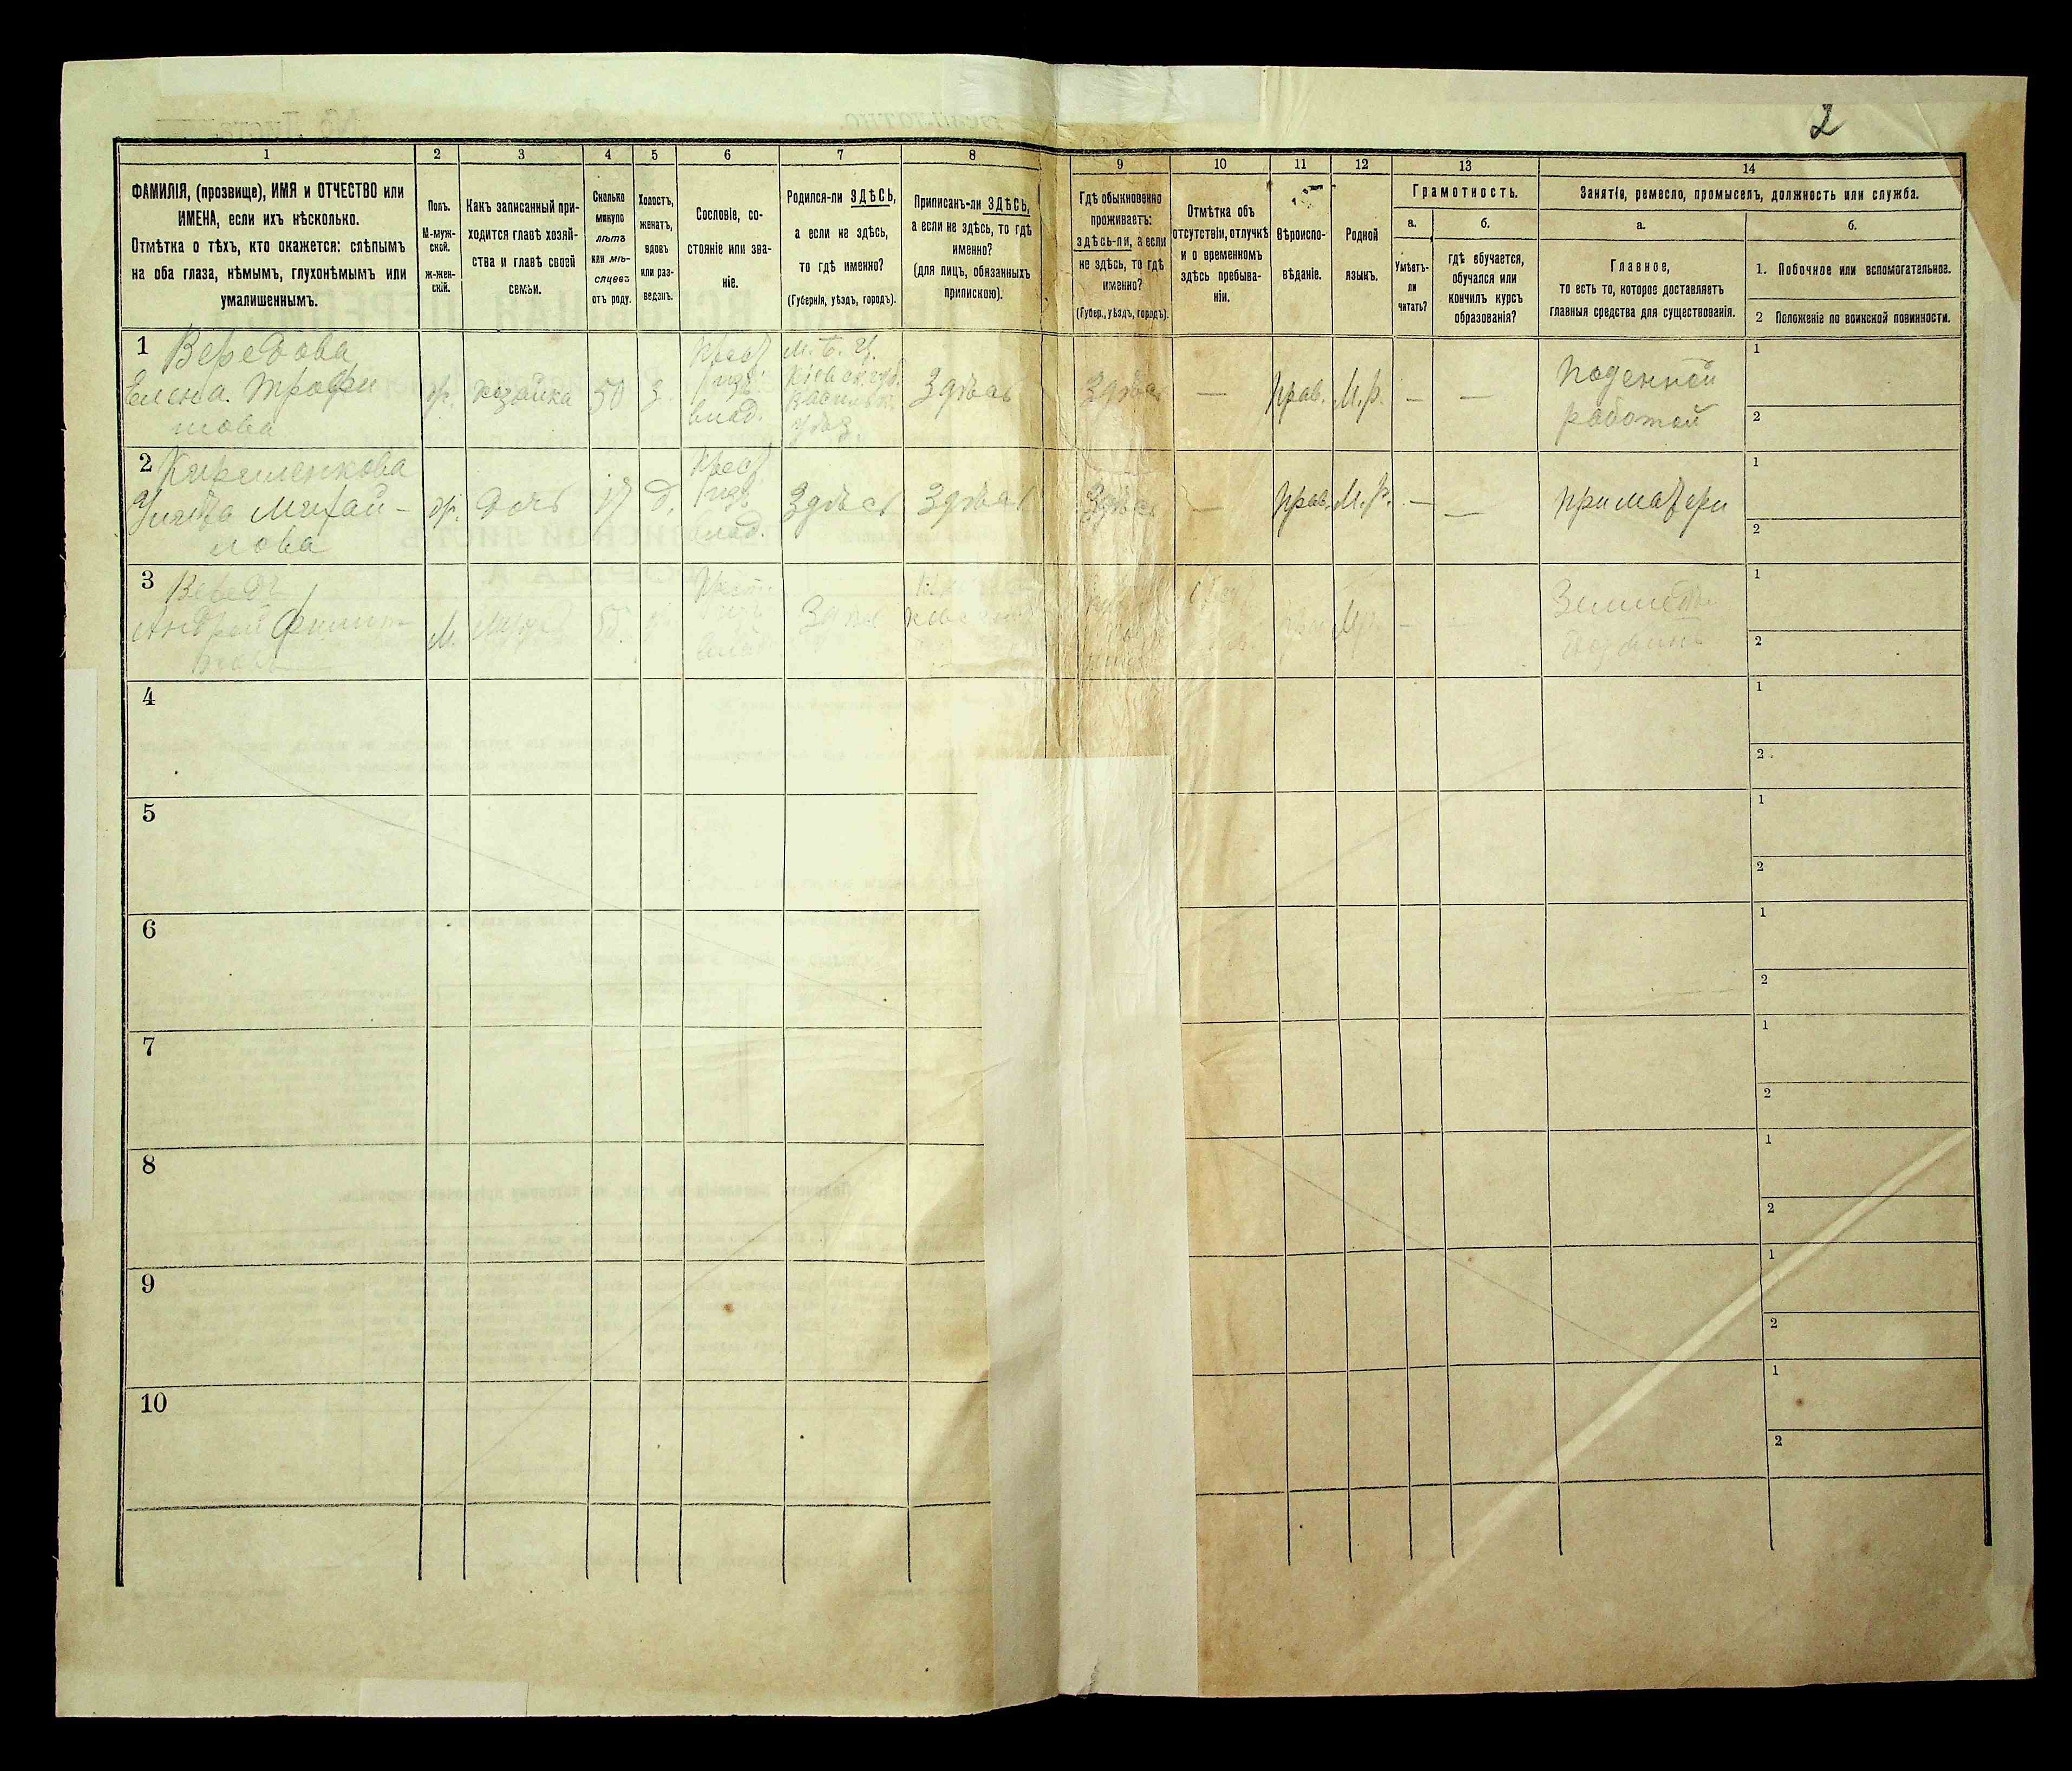 2
1
2
3
4
5
6
7
8
9
10
11
12
13
14
ФАМИЛІЯ, (прозвище), ИМЯ и ОТЧЕСТВО или
ИМЕНА, если ихъ нѣсколько.
Отмѣтка о тѣхъ, кто окажется: слѣпымъ
на оба глаза, нѣмымъ, глухонѣмымъ или
умалишеннымъ.
Полъ.
М-муж-
ской.
ж-жен-
скій.
Какъ записанный при-
ходится главѣ хозяй-
ства и главѣ своей
семьи.
Сколько
минуло
лѣтъ
или мѣ-
сяцевъ
отъ роду.
Холостъ,
женатъ,
вдовъ
или раз-
веденъ.
Сословіе, со-
стояніе или зва-
ніе.
Родился-ли ЗДѢСЬ,
а если не здѣсь,
то гдѣ именно?
(Губернія, уѣздъ, городъ).
Приписанъ-ли ЗДѢСЬ,
а если не здѣсь, то гдѣ
именно?
(для лицъ, обязанныхъ
припискою).
Гдѣ обыкновенно
проживаетъ:
здѣсь-ли, а если
не здѣсь, то гдѣ
именно?
(Губер., уѣздъ, городъ).
Отмѣтка объ
отсутствіи, отлучкѣ
и о временномъ
здѣсь пребыва-
ніи.
Вѣроиспо-
вѣданіе.
Родной
языкъ.
Грамотность.
а.
Умѣетъ-
ли
читать?
б.
гдѣ обучается,
обучался или
кончилъ курсъ
образованія?
Занятіе, ремесло, промыселъ, должность или служба.
а.
Главное,
то есть то, которое доставляетъ
главныя средства для существованія.
б.
1. Побочное или вспомогательное.
2 Положеніе по воинской повинности.
1 Вередова
Елена Трофи
мова
ж.
хозяйка
50
з.
Крест.
изъ
влад.
Кіевск. губ.
Васильк.
уѣз.
Здѣсь
Здѣсь
—
Прав.
М.р.
—
—
Поденной
работой
1
2
2 Кириленкова
Михай-
лова
ж.
дочь
17
д.
Крест.
изъ
влад.
Здѣсь
Здѣсь
Здѣсь
—
Прав.
М.р.
—
—
При матери
1
2
3
Андрей
М.
—
1
2
4
1
2
5
1
2
6
1
2
7
1
2
8
1
2
9
1
2
10
1
2